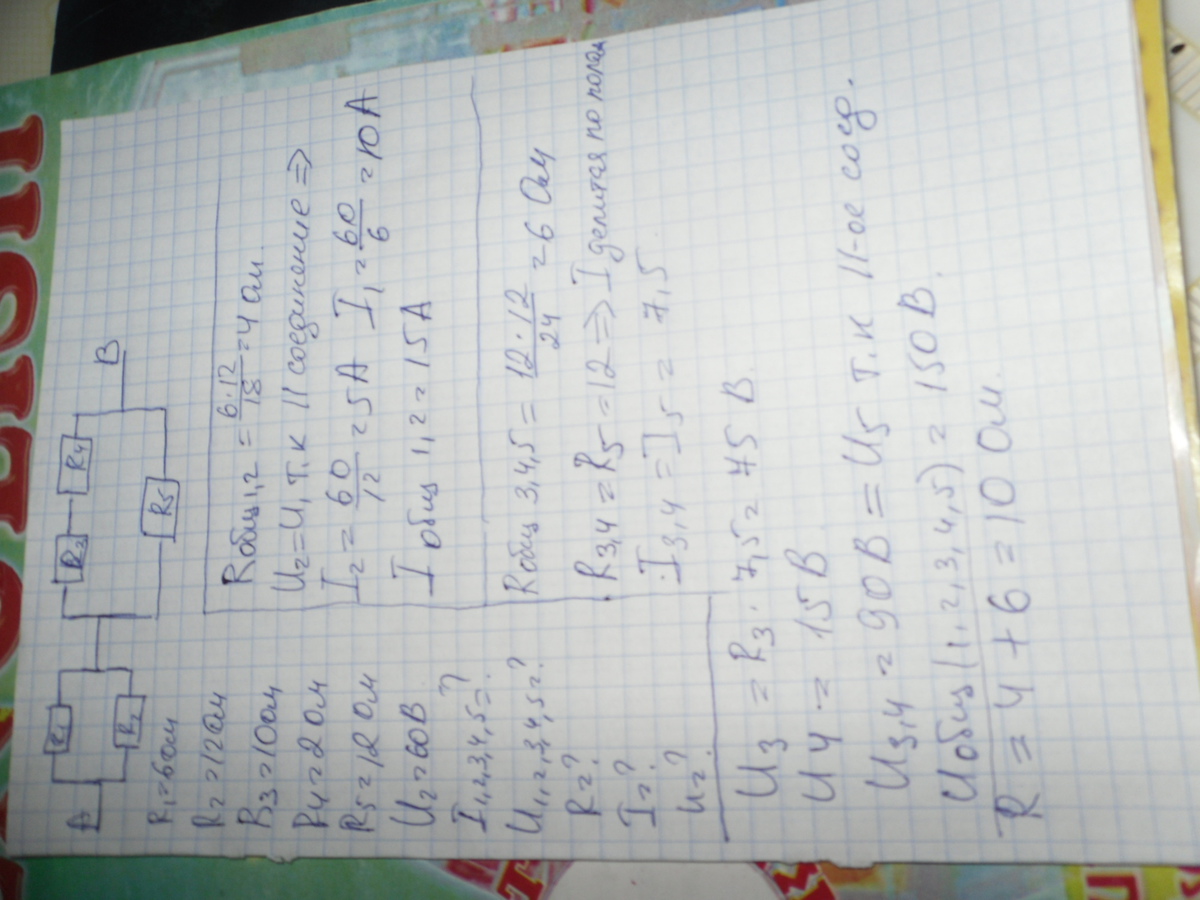 A
R1
R2
R3
R4
R5
B
R1=6ом
R2=12ом
R3=10ом
R4=2 ом
R5=12 Ом
U2=60В
I1,2,3,4,5=?
U1,2,3,4,5=?
R=?
I=?
U=?
Rобщ1,2 = 6·12/18 = 4 ом.
U2=U1 т.к || соединение =>
I2 = 60/12 = 5А I1 = 60/6 = 10А
I общ 1,2 = 15А
Rобщ 3,4,5 = 12·12/24 = 6 Ом
R3,4 = R5 = 12 => I делится по полам
I3,4 = I5 = 7,5
U3 = R3 · 7,5 = 75 В.
U4 = 15В
U3,4 = 90В = U5 т.к ||-ое соед.
Uобщ(1,2,3,4,5) = 150В.
R = 4 + 6 = 10 Ом.